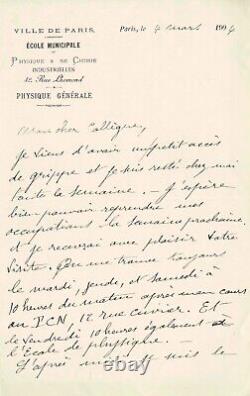 VILLE DE PARIS
ÉCOLE MUNICIPALE
DE
PHYSIQUE & DE CHIMIE
INDUSTRIELLES
42, Rue Lhomond
PHYSIQUE GÉNÉRALE
Paris, le 4 mars 1904
Mon cher Collègue,
je viens d'avoir un petit accès
de grippe et je suis resté chez moi
toute la semaine. J'espère
bien pouvoir reprendre mes
occupations la semaine prochaine
et je recevrai avec plaisir votre
visite. On me trouve toujours
le mardi, jeudi, et samedi à
10 heures du matin après mon cours
au PCN, 12 rue Cuvier. Et
le Vendredi 10 heures également à
l'École de physique.
L'après midi je suis le
© ebay.com